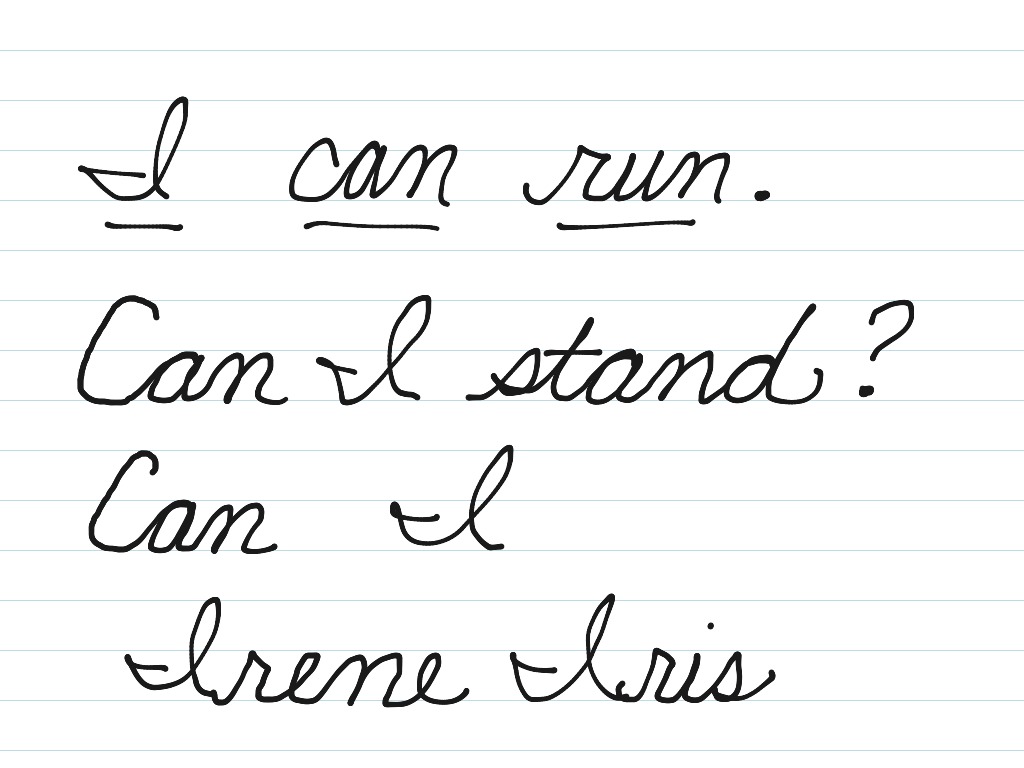 I can run.
Can I stand?
Can I
Irene Iris